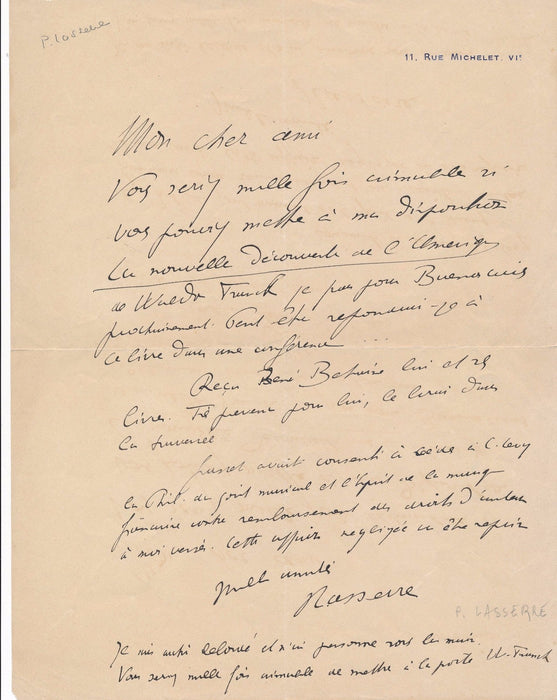 P. Lasserre
11, RUE MICHELET. VIe
Mon cher ami
Vous seriez mille fois aimable si
vous pouviez mettre à ma disposition
La nouvelle découverte de l'Amérique
de Waldo Franck je pars pour Buenos aires
prochainement. Peut être répondrai-je à
ce livre dans une conférence ....
Reçu René
livre. pour lui, le lirai dans
la traversée
avait consenti à céder à C. Levy
la Phil. du goût musical et l'Esprit de la musique
française contre remboursement des droits d'auteur
à moi versés. Cette affaire négligée va être
Mille amitiés
PLasserre
P. LASSERRE
Je suis et n'ai personne sous la main.
Vous seriez mille fois aimable de mettre à la poste W. Franck